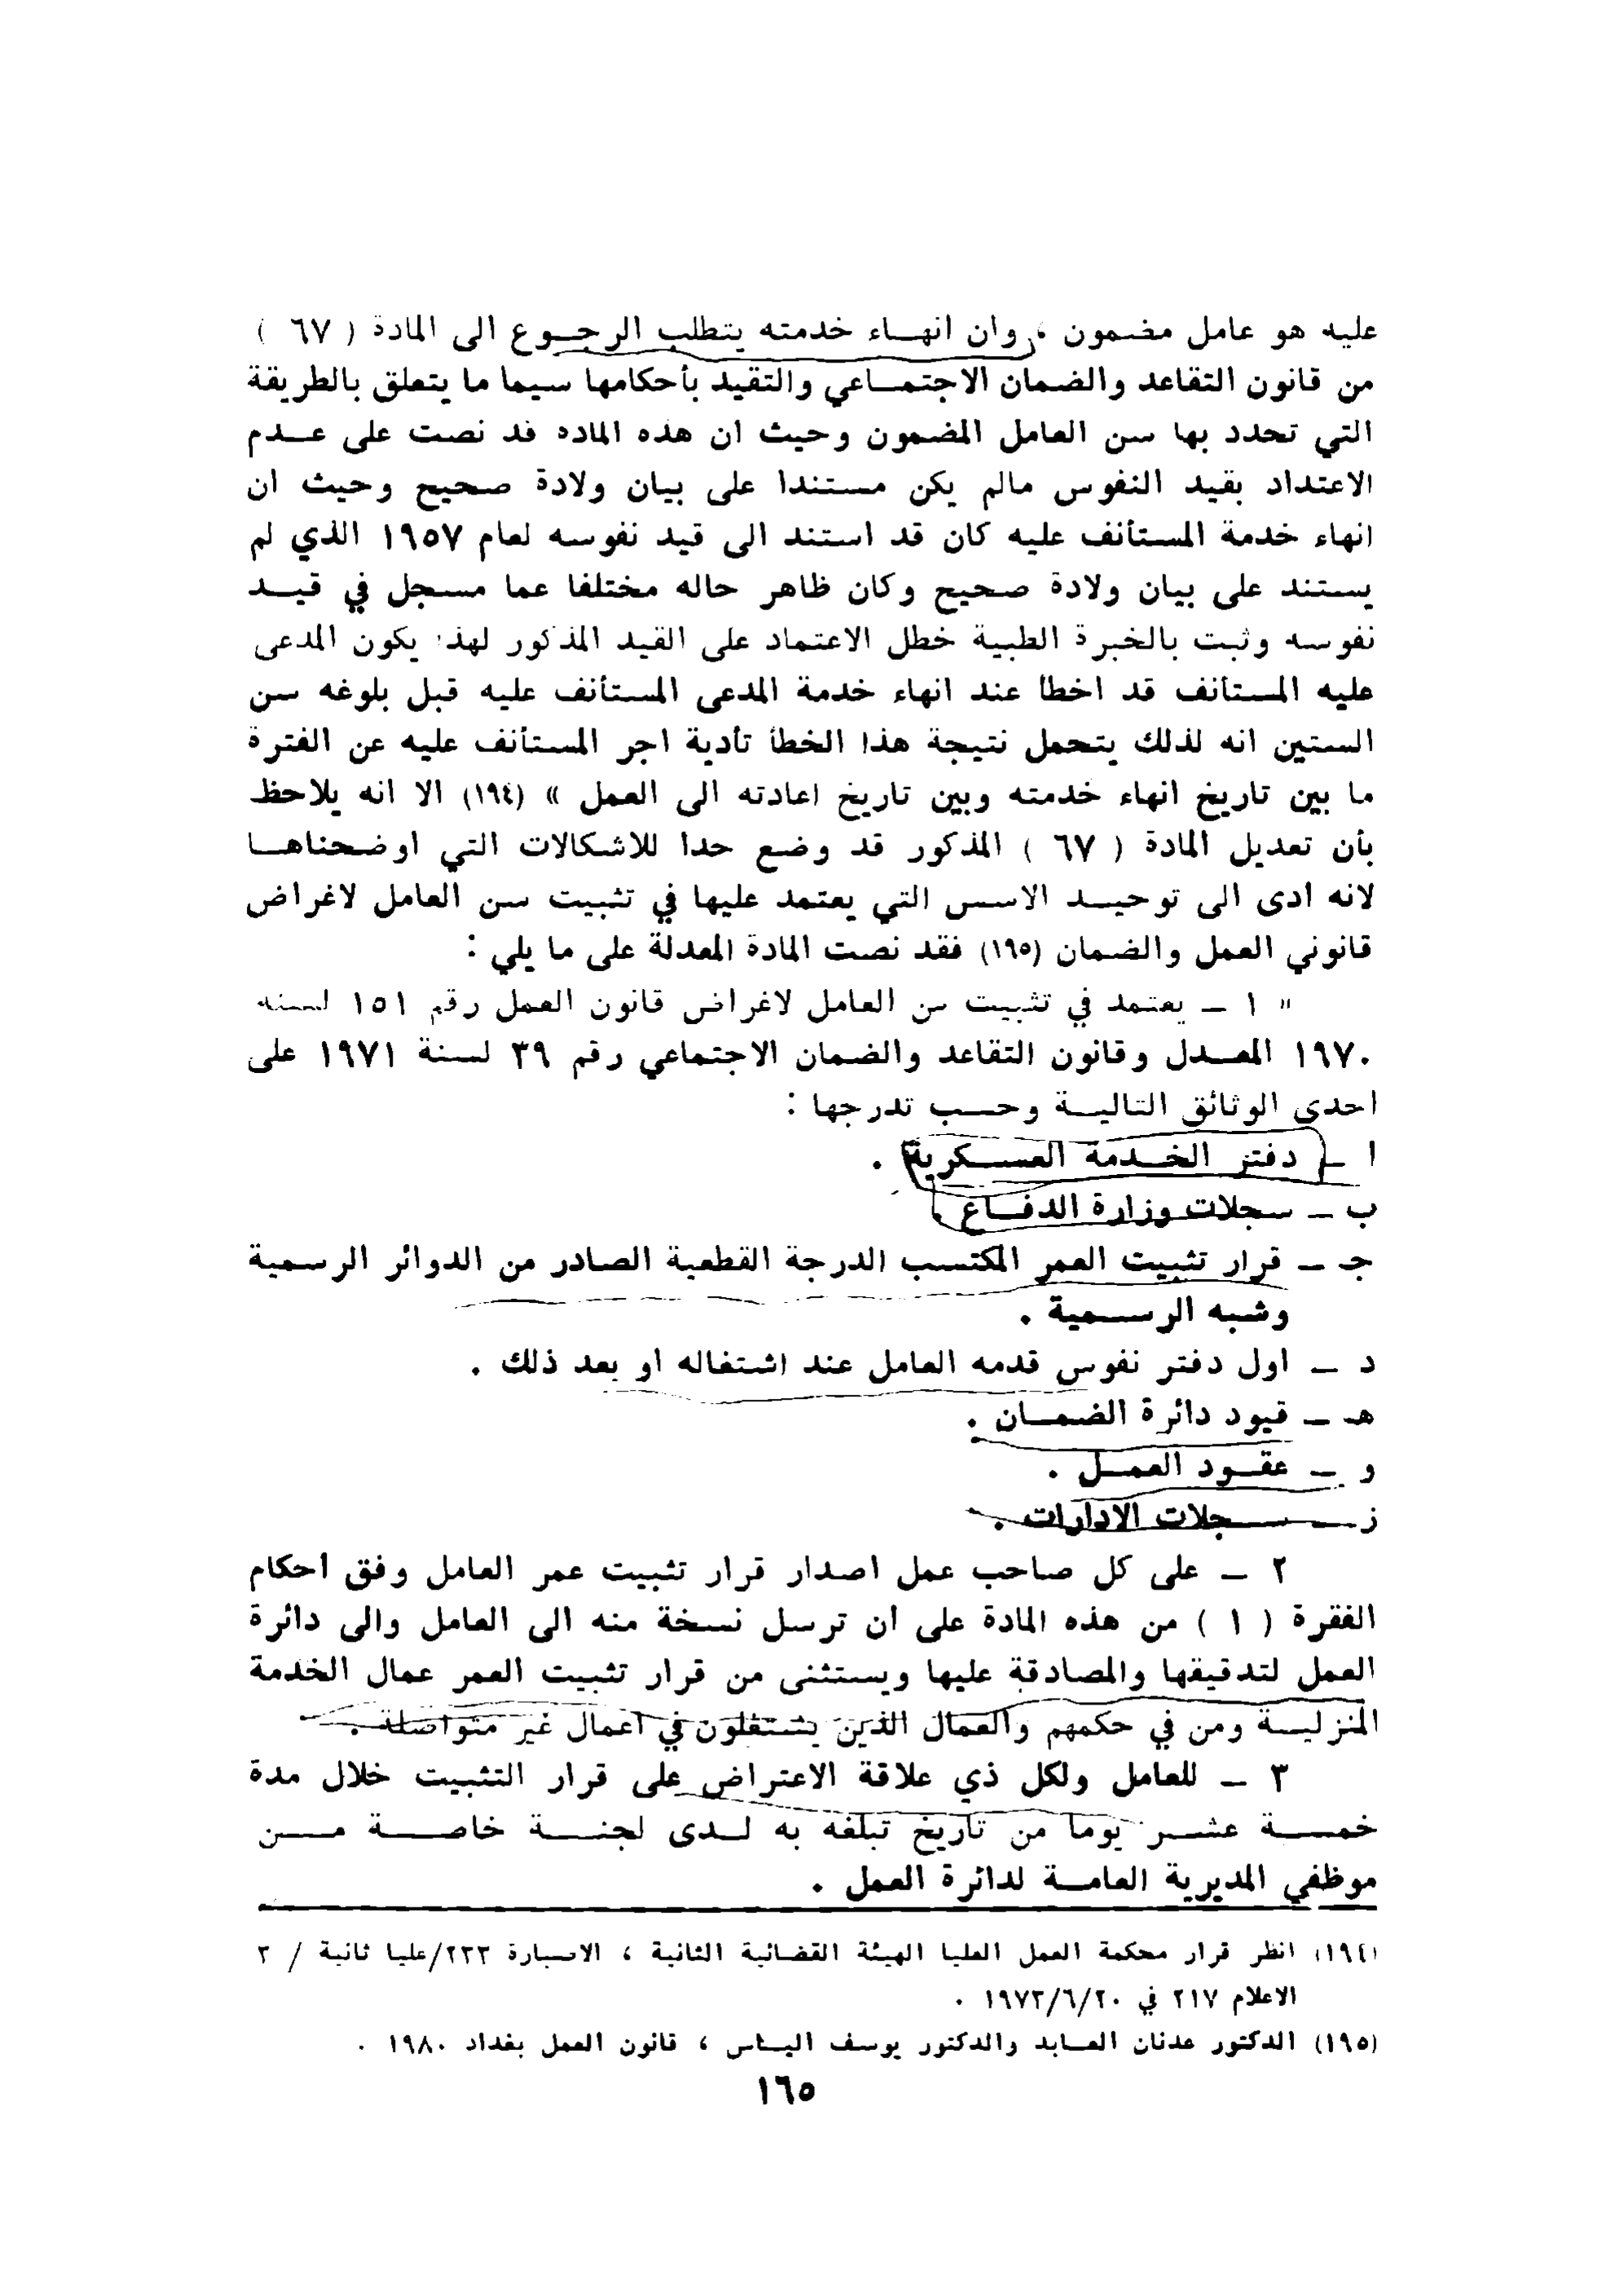 عليه هو عامل مضمون ، وان انهاء خدمته يتطلب الرجوع الى المادة ( ٦٧ )
من قانون التقاعد والضمان الاجتماعي والتقيد بأحكامها سيما ما يتعلق بالطريقة
التي تحدد بها سن العامل المضمون وحيث ان هذه الماده قد نصت على عدم
الاعتداد بقيد النفوس مالم يكن مستندا على بيان ولادة صحيح وحيث ان
انهاء خدمة المستأنف عليه كان قد استند الى قيد نفوسه لعام ١٩٥٧ الذي لم
يستند على بيان ولادة صحيح وكان ظاهر حاله مختلفا عما مسجل في قيد
نفوسه وثبت بالخبرة الطبية خطل الاعتماد على القيد المذكور لهذا يكون المدعى
عليه المستأنف قد اخطأ عند انهاء خدمة المدعى المستأنف عليه قبل بلوغه سن
الستين انه لذلك يتحمل نتيجة هذا الخطأ تأدية اجر المستأنف عليه عن الفترة
ما بين تاريخ انهاء خدمته وبين تاريخ اعادته الى العمل » (١٩٤) الا انه يلاحظ
بأن تعديل المادة ( ٦٧ ) المذكور قد وضع حدا للاشكالات التي اوضحناها
لانه ادى الى توحيد الاسس التي يعتمد عليها في تثبيت سن العامل لاغراض
قانوني العمل والضمان (١٩٥) فقد نصت المادة المعدلة على ما يلي :
« ١ – يعتمد في تثبيت سن العامل لاغراض قانون العمل رقم ١٥١ لسنه
١٩٧٠ المعدل وقانون التقاعد والضمان الاجتماعي رقم ٣٩ لسنة ١٩٧١ على
احدى الوثائق التالية وحسب تدرجها :
ا – دفتر الخدمة العسكرية .
ب – سجلات وزارة الدفاع .
جـ – قرار تثبيت العمر المكتسب الدرجة القطعية الصادر من الدوائر الرسمية
وشبه الرسمية .
د – اول دفتر نفوس قدمه العامل عند اشتغاله او بعد ذلك .
هـ – قيود دائرة الضمان .
و – عقود العمل .
ز – سجلات الادارات .
٢ – على كل صاحب عمل اصدار قرار تثبيت عمر العامل وفق احكام
الفقرة ( ١ ) من هذه المادة على ان ترسل نسخة منه الى العامل والى دائرة
العمل لتدقيقها والمصادقة عليها ويستثنى من قرار تثبيت العمر عمال الخدمة
المنزلية ومن في حكمهم والعمال الذين يشتغلون في اعمال غير متواصلة .
٣ – للعامل ولكل ذي علاقة الاعتراض على قرار التثبيت خلال مدة
خمسة عشر يوما من تاريخ تبلغه به لدى لجنة خاصة من
موظفي المديرية العامة لدائرة العمل .
(١٩٤) انظر قرار محكمة العمل العليا الهيئة القضائية الثانية ، الاضبارة ٢٢٣/عليا ثانية / ٣
الاعلام ٢١٧ في ١٩٧٣/٦/٢٠ .
(١٩٥) الدكتور عدنان العابد والدكتور يوسف الياس ، قانون العمل بغداد ١٩٨٠ .
١٦٥